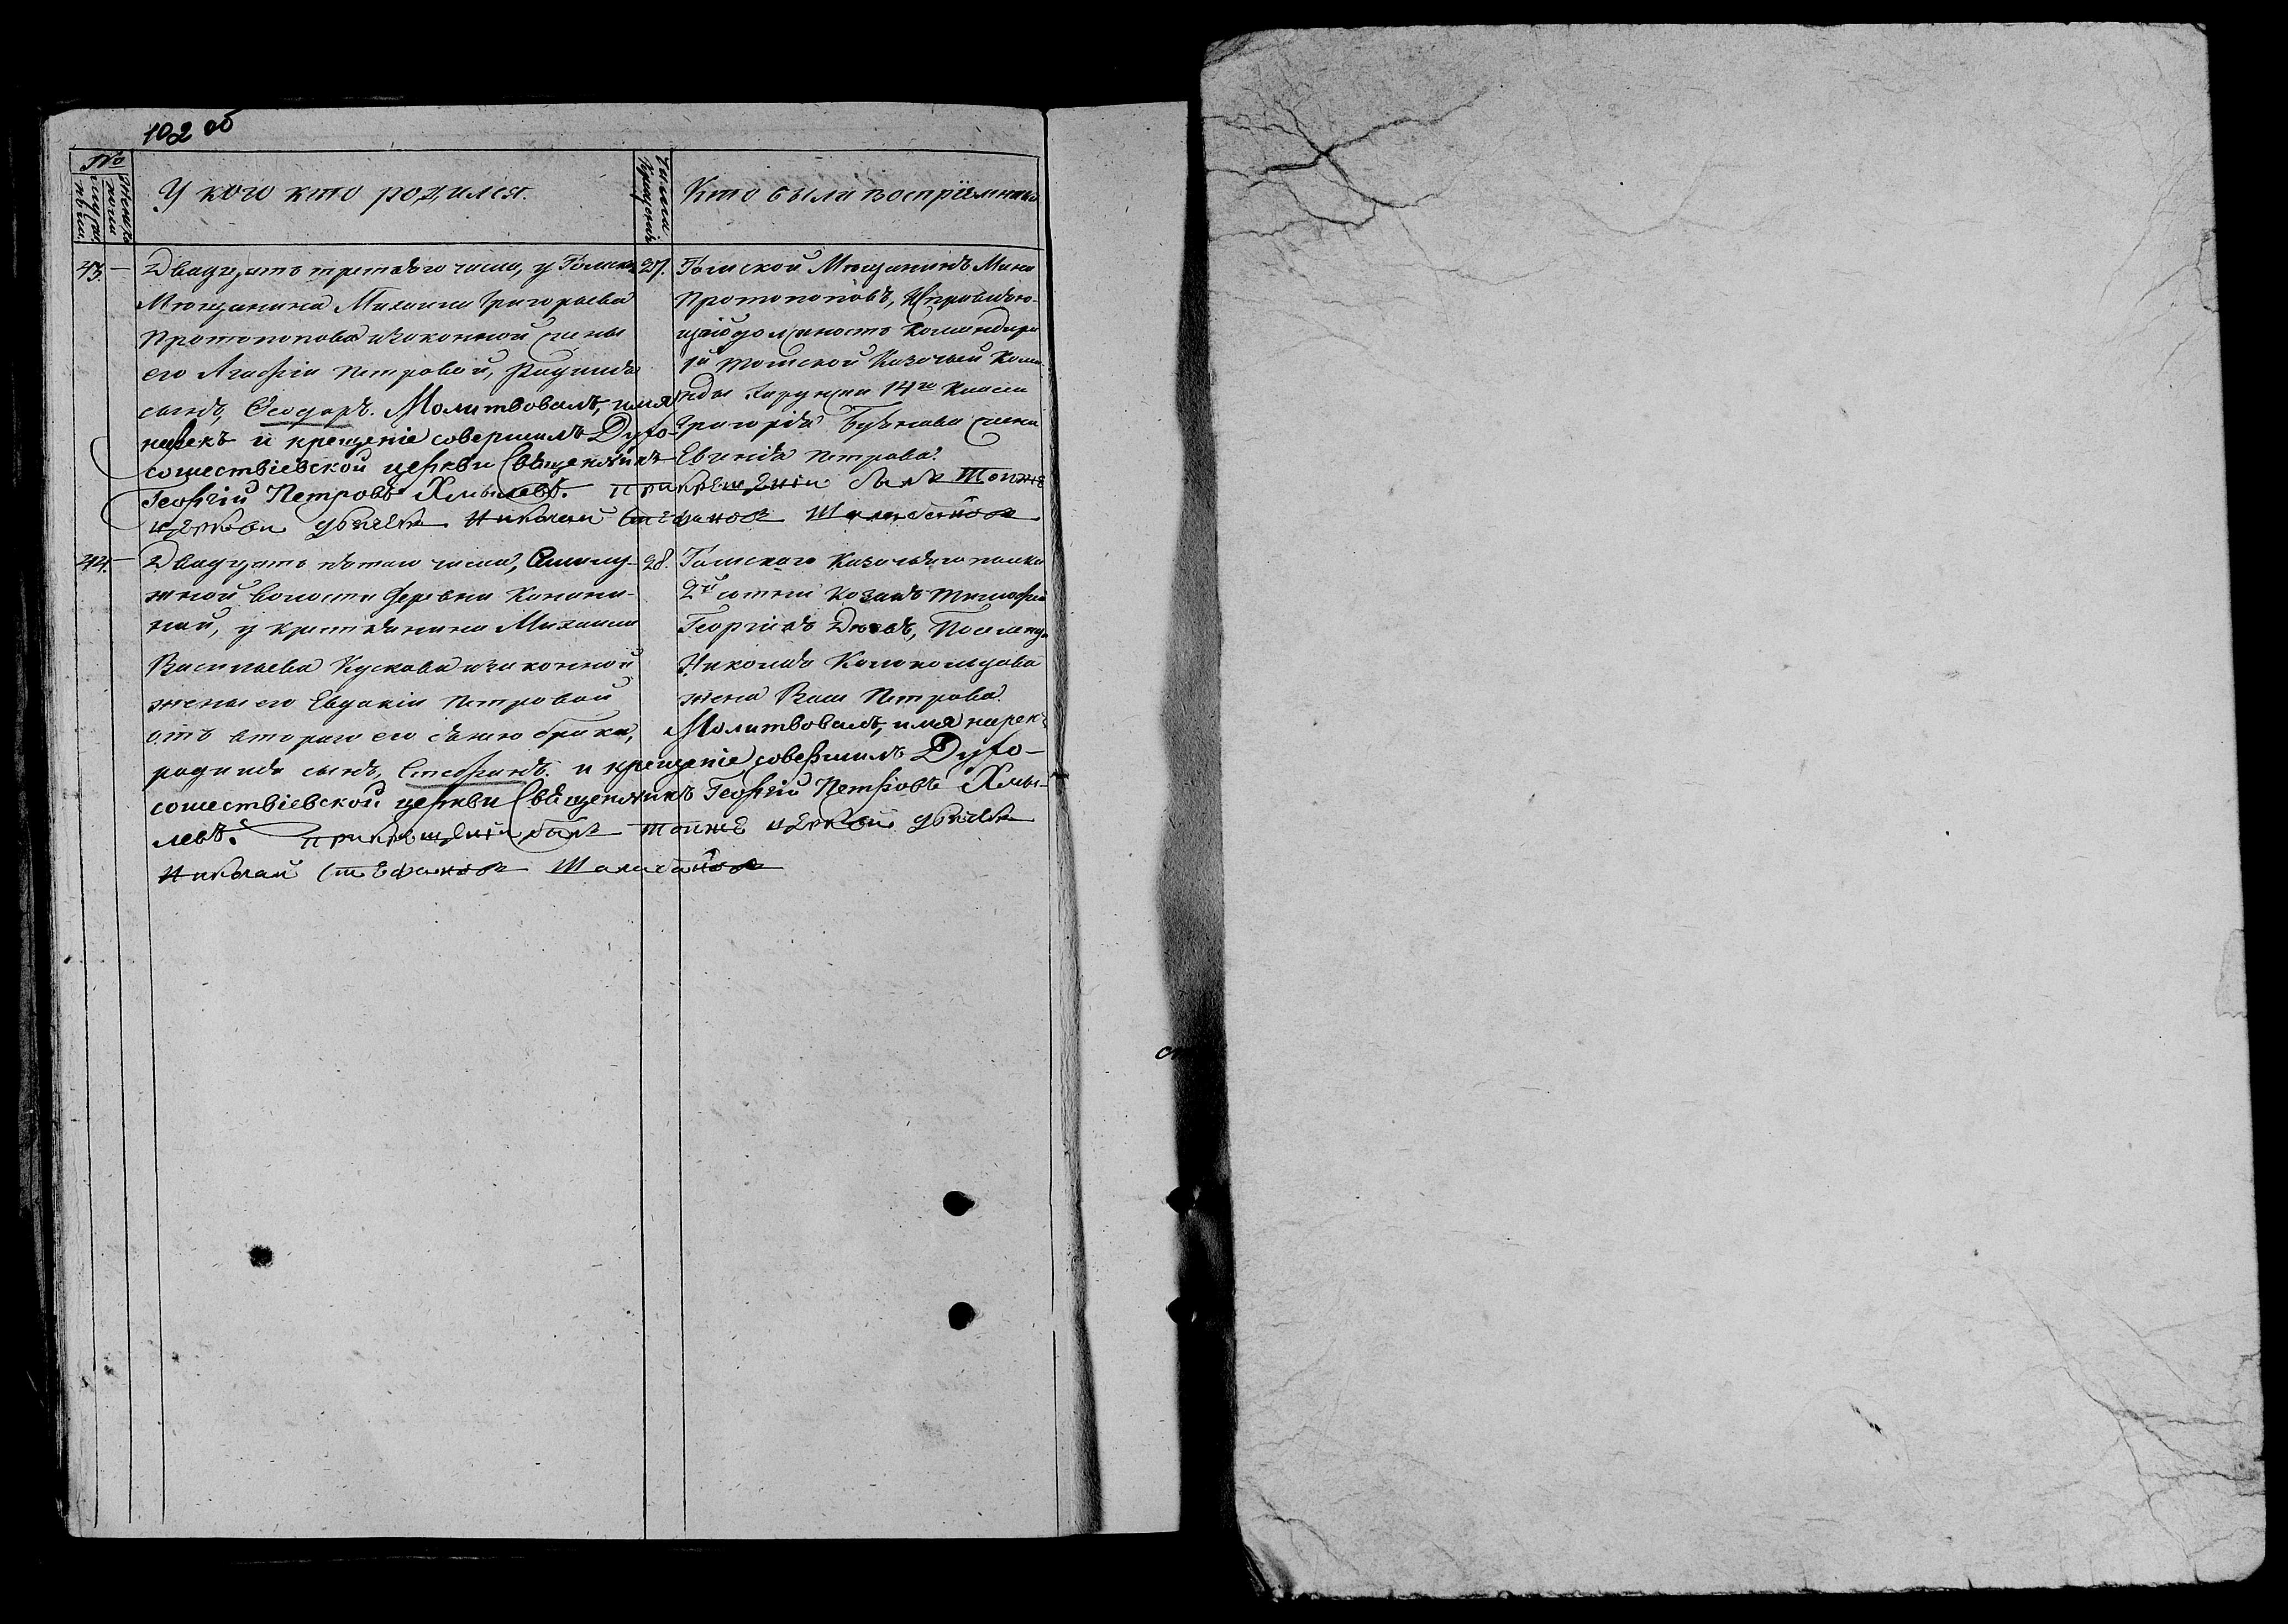 102 об
№
мужеска
женска
У кого кто родился.
Числа крещенія
Кто были воспріемники
43. —
Двадцать третьяго числа, у Томска
Мѣщанина Михаила Григорьева
Протопопова и законной жены
его Агафіи Петровой, родился
сынъ, Ѳеодоръ. Молитвовалъ, имя
нарекъ и крещеніе совершилъ Духо-
сошествіевской церкви Священникъ
Георгій Петровъ Хмылевъ. При крещеніи былъ тойже
церкви Николай Стефановъ
27.
Томской Мѣщанинъ
Протопоповъ, Исправляю-
щаго должность Командира
й Томской Казачьей Кома
нды Хорунжи 14го Класса
Григорія жена
Петрова.
44. —
Двадцать пятаго числа,
жной волости деревни
ной, у крестьянина Михаила
Васильева Кускова и законной
жены его Евдокіи Петровой
отъ втораго его съ нею брака,
родился сынъ, Стефанъ. и крещеніе совершилъ Духо-
сошествіевской церкви Священникъ Георгій Петровъ Хмы-
левъ. При крещеніи былъ тойже церкви
Николай Стефановъ
28.
Томскаго Казачьяго полка
2й сотни Козакъ Тимофей
Георгіевъ Поселенца
Николая Колокольцова
жена Петрова.
Молитвовалъ, имя нарекъ